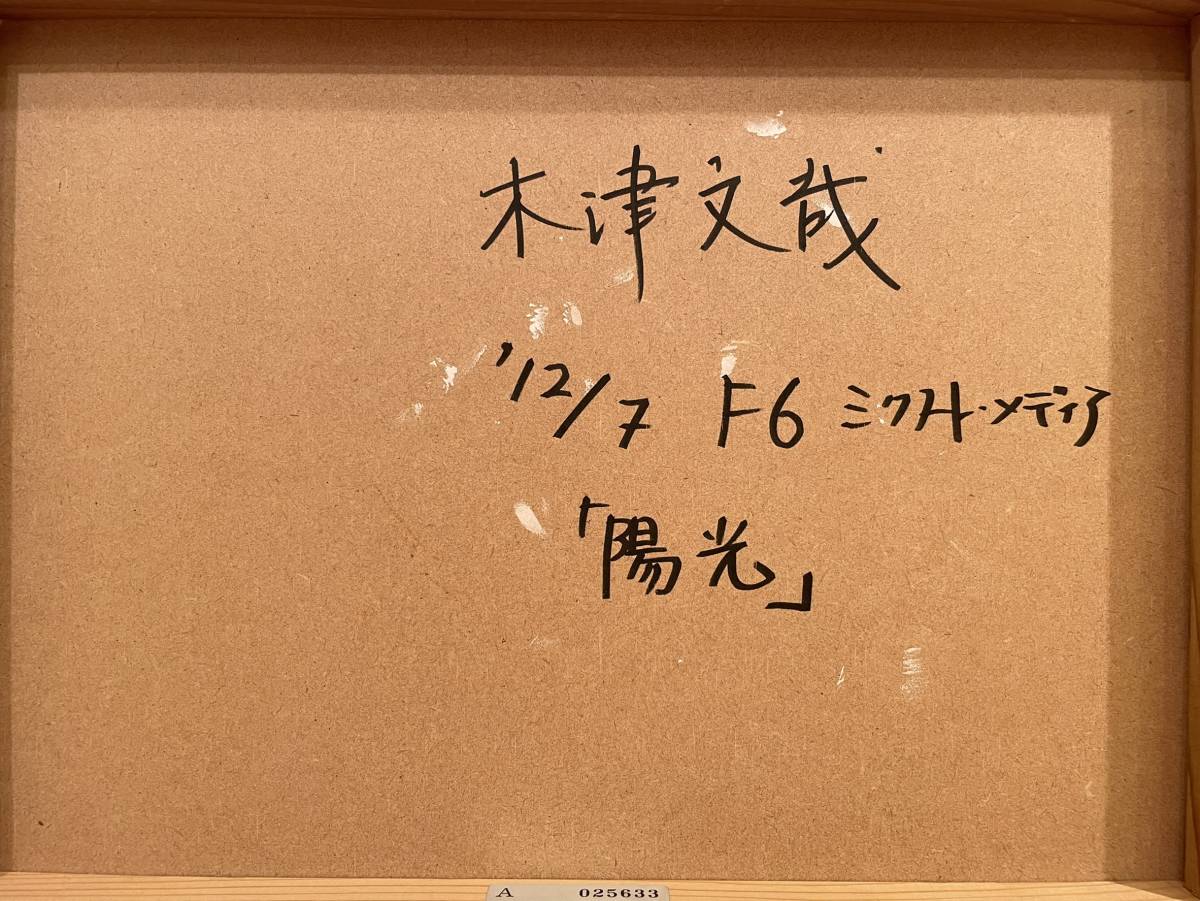 木津文哉
'12/7 F6 ミクスト・メディア
「陽光」
A 025633